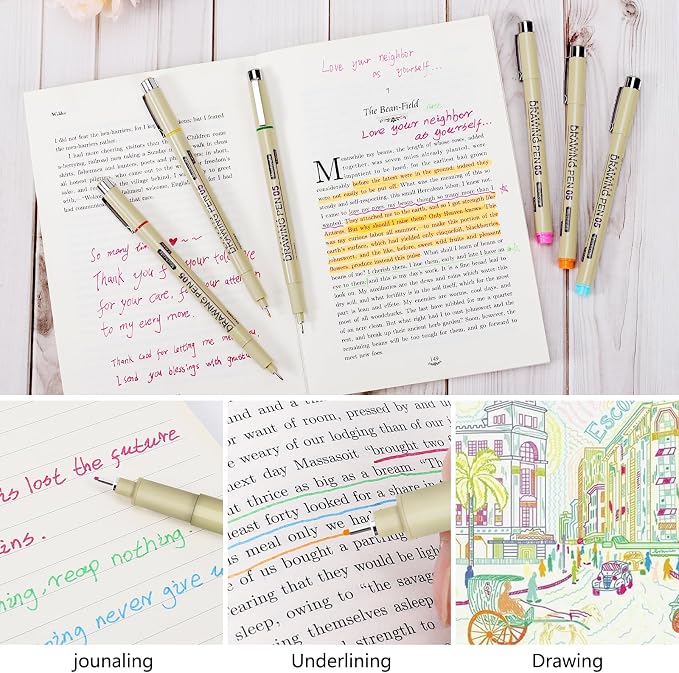 Walden
I did not fear the hen-harriers, for I kept no chickens, but I feared
the men-harriers rather.
Love your neighbor
as yourself...
7
The Bean-Field
Love your neighbor
as yourself...
Meanwhile my beans, the length of whose rows, added
together, was seven miles already planted, were
impatient to be hoed, for the earliest had grown
considerably before the latest were in the ground; indeed they
were not easily to be put off. What was the meaning of this so
steady and self-respecting, this small Herculean labor, I knew not.
I came to love my rows, my beans, though so many more than I
wanted. They attached me to the earth, and so I got strength like
Antæus. But why should I raise them? Only Heaven knows. This
was my curious labor all summer,—to make this portion of the
earth's surface, which had yielded only cinquefoil, blackberries,
johnswort, and the like, before, sweet wild fruits and pleasant
flowers, produce instead this pulse. What shall I learn of beans or
beans of me? I cherish them, I hoe them, early and late I have an
eye to them; and this is my day's work. It is a fine broad leaf to
look on. My auxiliaries are the dews and rains which water this
dry soil, and what fertility is in the soil itself, which for the most
part is lean and effete. My enemies are worms, cool days, and
most of all woodchucks. The last have nibbled for me a quarter
of an acre clean. But what right had I to oust johnswort and the
rest, and break up their ancient herb garden? Soon, however, the
remaining beans will be too tough for them, and go forward to
meet new foes.
149
So many
Thank you for your tolerance
for your care, for your attention
to my every move.
Thank God for letting me
I send you blessings with
DRAWING PEN 05
DRAWING PEN 05
DRAWING PEN 05
DRAWING PEN 05
DRAWING PEN 05
DRAWING PEN 05
lost the future
reap nothing
never give
and and a
or want of room, pressed by and
weary of our lodging than of our
next day Massasoit "brought two
thrice as big as a bream. "The
east forty looked for a share in
meal only we had
of us bought a partridge
fearing that they would be light
owing to "the savage
themselves asleep
strength to
jounaling
Underlining
Drawing